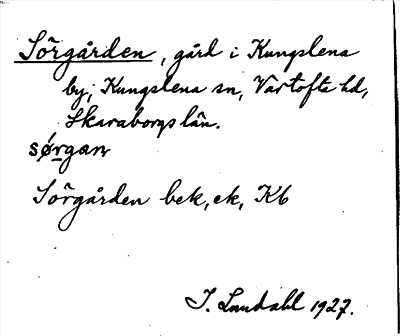 Sörgården, gård i Kungslena
by, Kungslena sn, Vartofta hd,
Skaraborgs län.
sørgan
Sörgården bek, ek, Kb
I. Lundahl 1927.